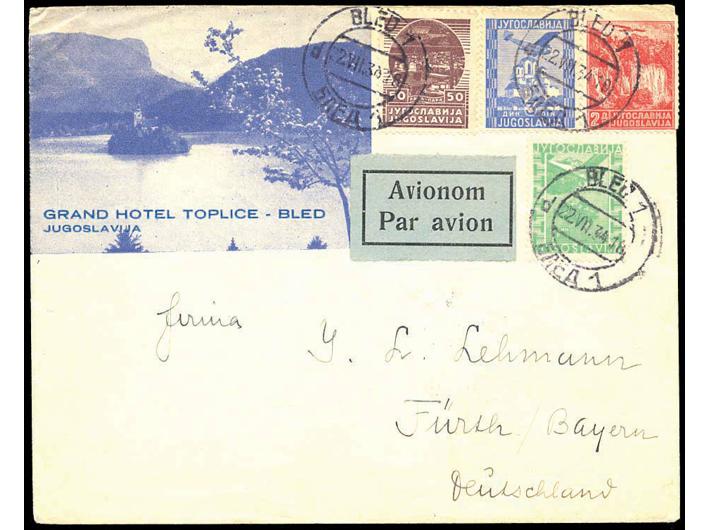 BLED 1
22.VII.34
БЛЕД 1
d
50 50
ЈУГОСЛАВИЈА
JUGOSLAVIJA
ЈУГОСЛАВИЈА
JUGOSLAVIJA
BLED 1
22.VII.34
БЛЕД 1
2 Д
ЈУГОСЛАВИЈА
JUGOSLAVIJA
GRAND HOTEL TOPLICE - BLED
JUGOSLAVIJA
Avionom
Par avion
ЈУГОСЛАВИЈА
JUGOSLAVIJA
BLED 1
d
22.VII.34.16
БЛЕД 1
Firma
Y. L. Lehmann
Fürth / Bayern
Deutschland